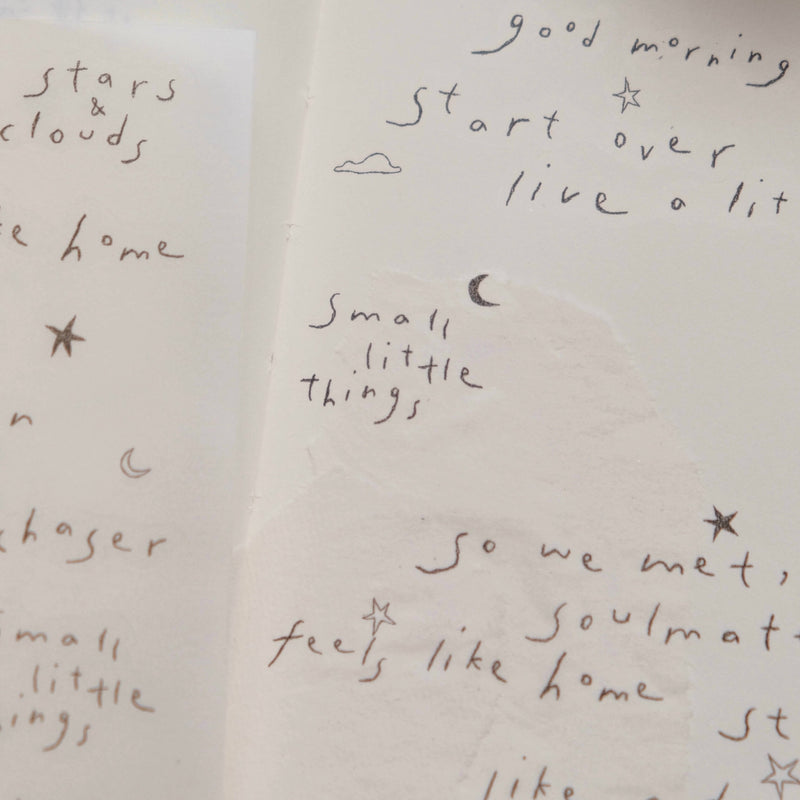 stars
&
clouds
home
small
little
good morning
start over
live a
small
little
things
so we met,
feels like home
like